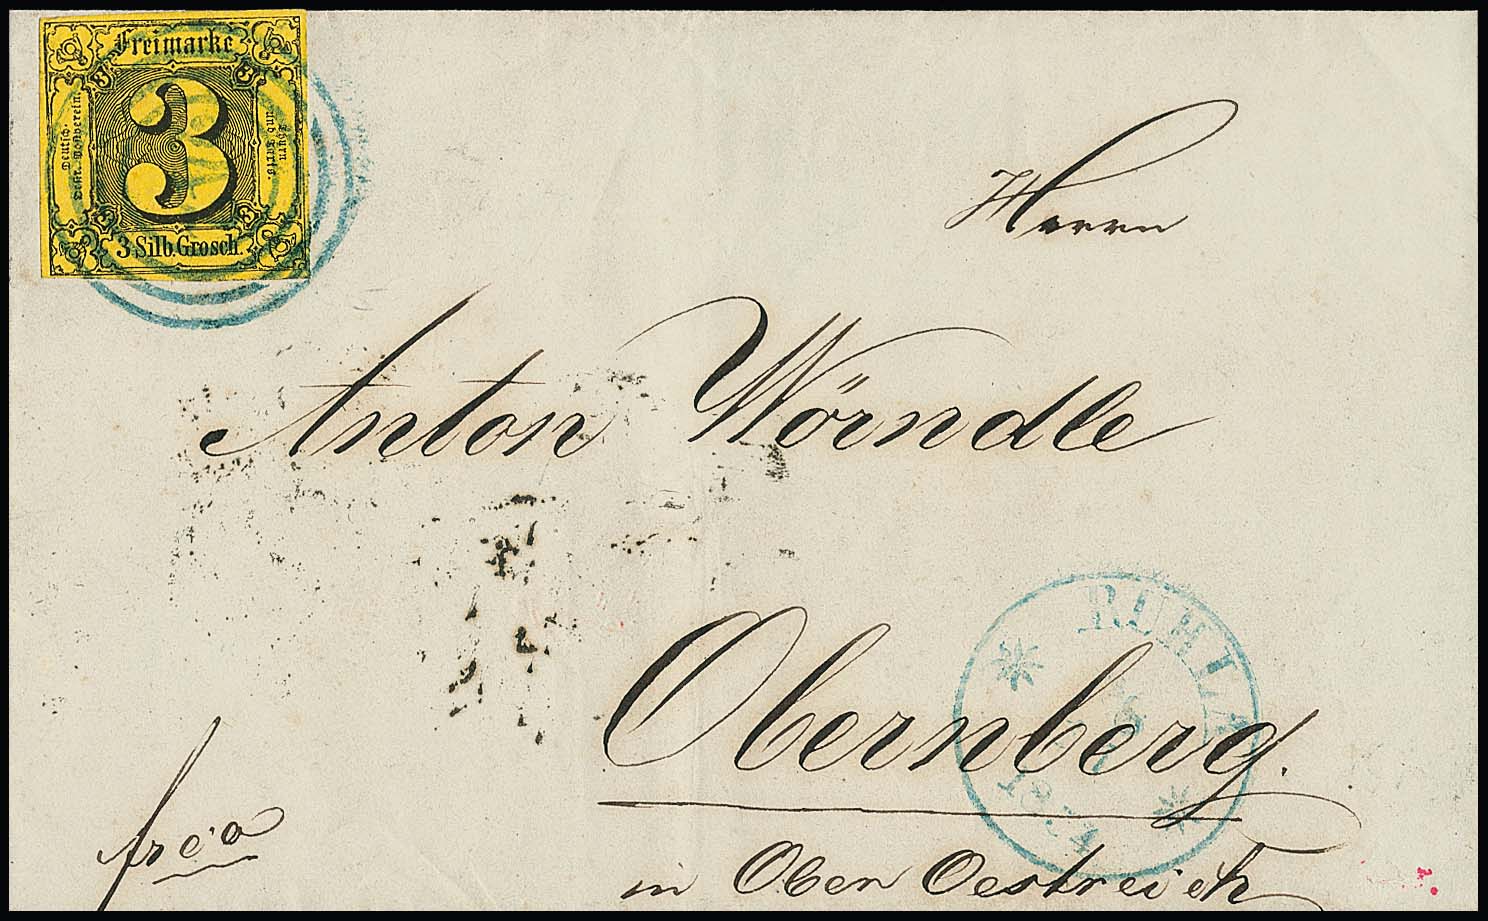 Freimarke
Deutsch-
Oestr. Postverein.
3
3
3
Thurn
und Taxis.
3
3
3 Silb. Grosch.
Herrn
Anton Wörndle
RUHLA
Obernberg.
in Ober Oestreich
frco